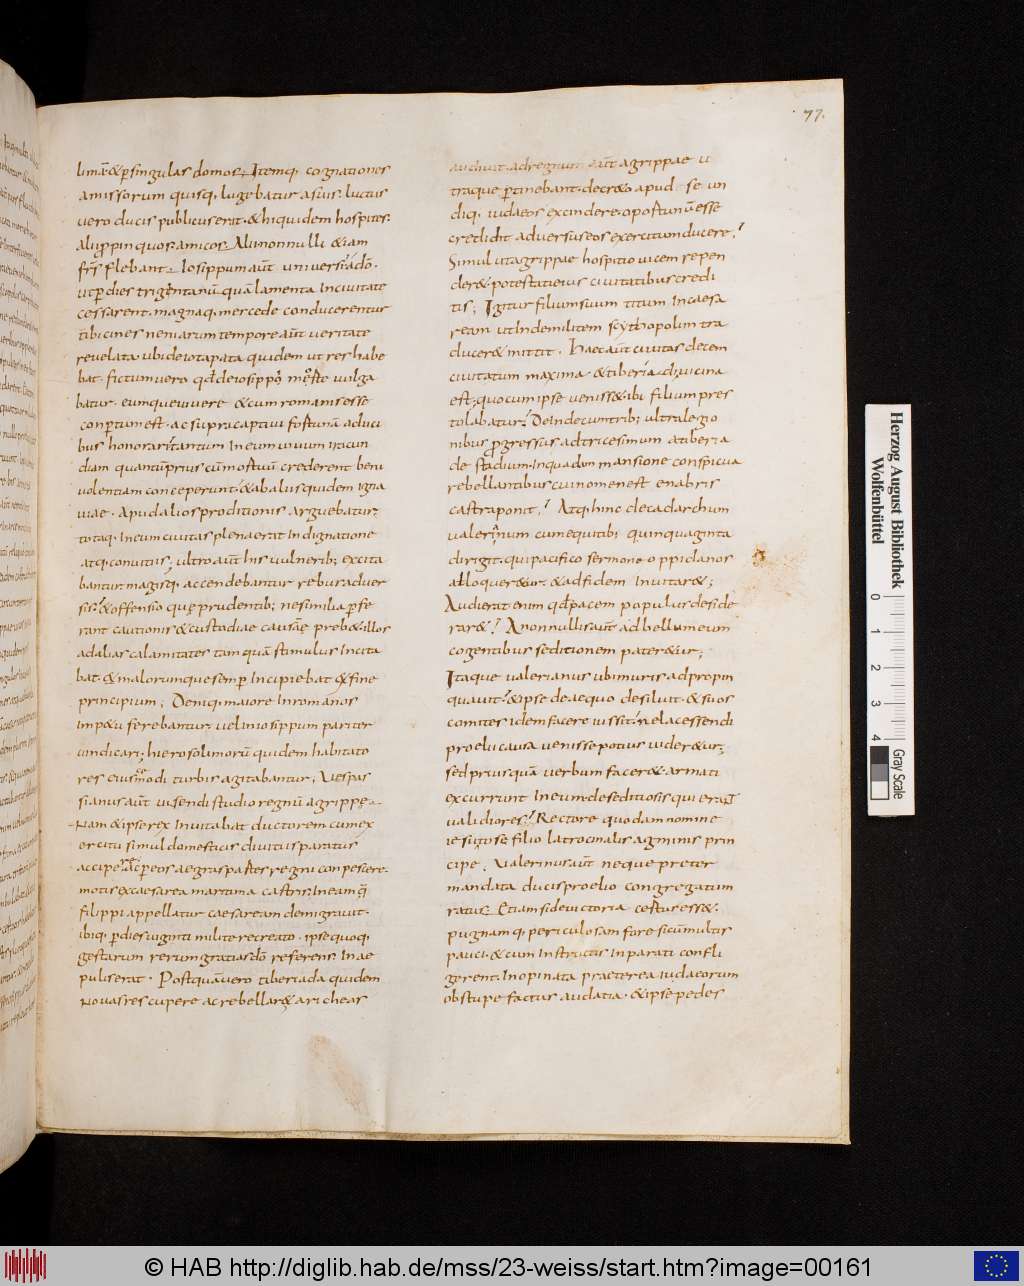 77.
limā & p singulas domos. Itemq; cognationes
amissorum quisq; lugebatur a suis. luctus
uero ducis publicus erat. & hi quidem hospites.
alii ppinquos. amicos. Alii nonnulli etiam
frēs flebant. Iosippum aūt uniuersi. adō.
ut p dies triginta nūquā lamenta In ciuitate
cessarent. magnaq; mercede conducerentur
tibicines neniarum tempore aūt ueritate
reuelata. ubi de iotapata quidem ut res habe
bat. fictum uero qđ de iosippo morte uulga
batur. eumque uiuere & cum romanis esse
conptum est. ac supra captiui fortunā a duci
bus honorari. tantum In eum uiuum iracun
diam quantū prius cū mortuū crederent beni
uolentiam conceperunt. & ab aliis quidem igna
uiae. Apud alios proditionis arguebatur;
totaq. In eum ciuitas plena erat Indignatione
atq. conuitiis; ultro aūt his uulnerib; excita
bantur. magisq. accendebantur rebus aduer
sis. & offensio quę prudentib; ne similia p fe
rant cautionis & custodiae causā pręb&. illos
ad alias calamitates tam quā stimulus Incita
bat. & malorumque semp Incipiebat ex fine
principium; Deniq. maiore In romanos
Imp&u ferebantur. uel In iosippum pariter
uindicari; hierosolimorū quidem habitato
res eiusmodi turbis agitabantur; Uespas
sianus aūt uisendi studio regnū agrippę.
Nam & ipse rex Inuitabat ductorem cum ex
ercitu simul domesticis diuitiis paratus
accipere. ac p eos aegras partes regni conpescere.
motis ex caesarea maritima castris. In eam q̄
filippi appellatur caesaream demigrauit.
ibiq. p dies uiginti milite recreato. ipse quoq.
gestarum rerum gratias dō referens. In ae
pulis erat. Postquā uero tiberiada quidem
Nouas res cupere ac rebellar& aricheas
aut agrippae u
traque ptinebant. decr&o apud se un
diq. iudaeos excindere. oportunū esse
credidit aduersus eos exercitum ducere;
Simul ut agrippae hospitio uicem repen
der& potestati eius ciuitatibus credi
tis; Igitur filium suum titum In caesa
ream ut Inde militem scythopolim tra
ducer& mittit. Haec aūt ciuitas decem
ciuitatum maxima & tiberiadi uicina
est, quo cum ipse uenisset ibi filium pres
tolabatur; DeInde cum trib; ultra legio
nibus pgressus ad tricesimum a tiberia
de stadium. In quadam mansione conspicua
rebellantibus cui nomen est enabris
castra ponit; Atq. hinc decadarchum
ualerianum cum equitib; quinquaginta
dirigit. qui pacifico sermone oppidanos
alloquer&ur. & ad fidem Inuitar&;
Audierat enim qđ pacem populus deside
rar&; A nonnullis aūt ad bellum eum
cogentibus seditionem pater&ur;
Itaque ualerianus ubi muris ad propin
quauit. & ipse de aequo desiluit. & suos
comites idem facere iussit. ne lacessendi
proelii causa uenisse potius uider&ur;
sed priusquā uerbum facer& armati
excurrunt In eum. de seditiosis qui erant
ualidiores; Rectore quodam nomine
iesu tosę filio latrocinalis agminis prin
cipe; Ualerinus aūt neque preter
mandata ducis proelio congregatum
ratus. Etiam si de uictoria certus ess&.
pugnamq. periculosam fore si cū multis
pauci. & cum Instructis Inparati confli
gerent. Inopinata praeterea iudaeorum
obstupe factus audatia. & ipse pedes
Herzog August Bibliothek
Wolfenbüttel
0 1 2 3 4
Gray Scale
© HAB http://diglib.hab.de/mss/23-weiss/start.htm?image=00161